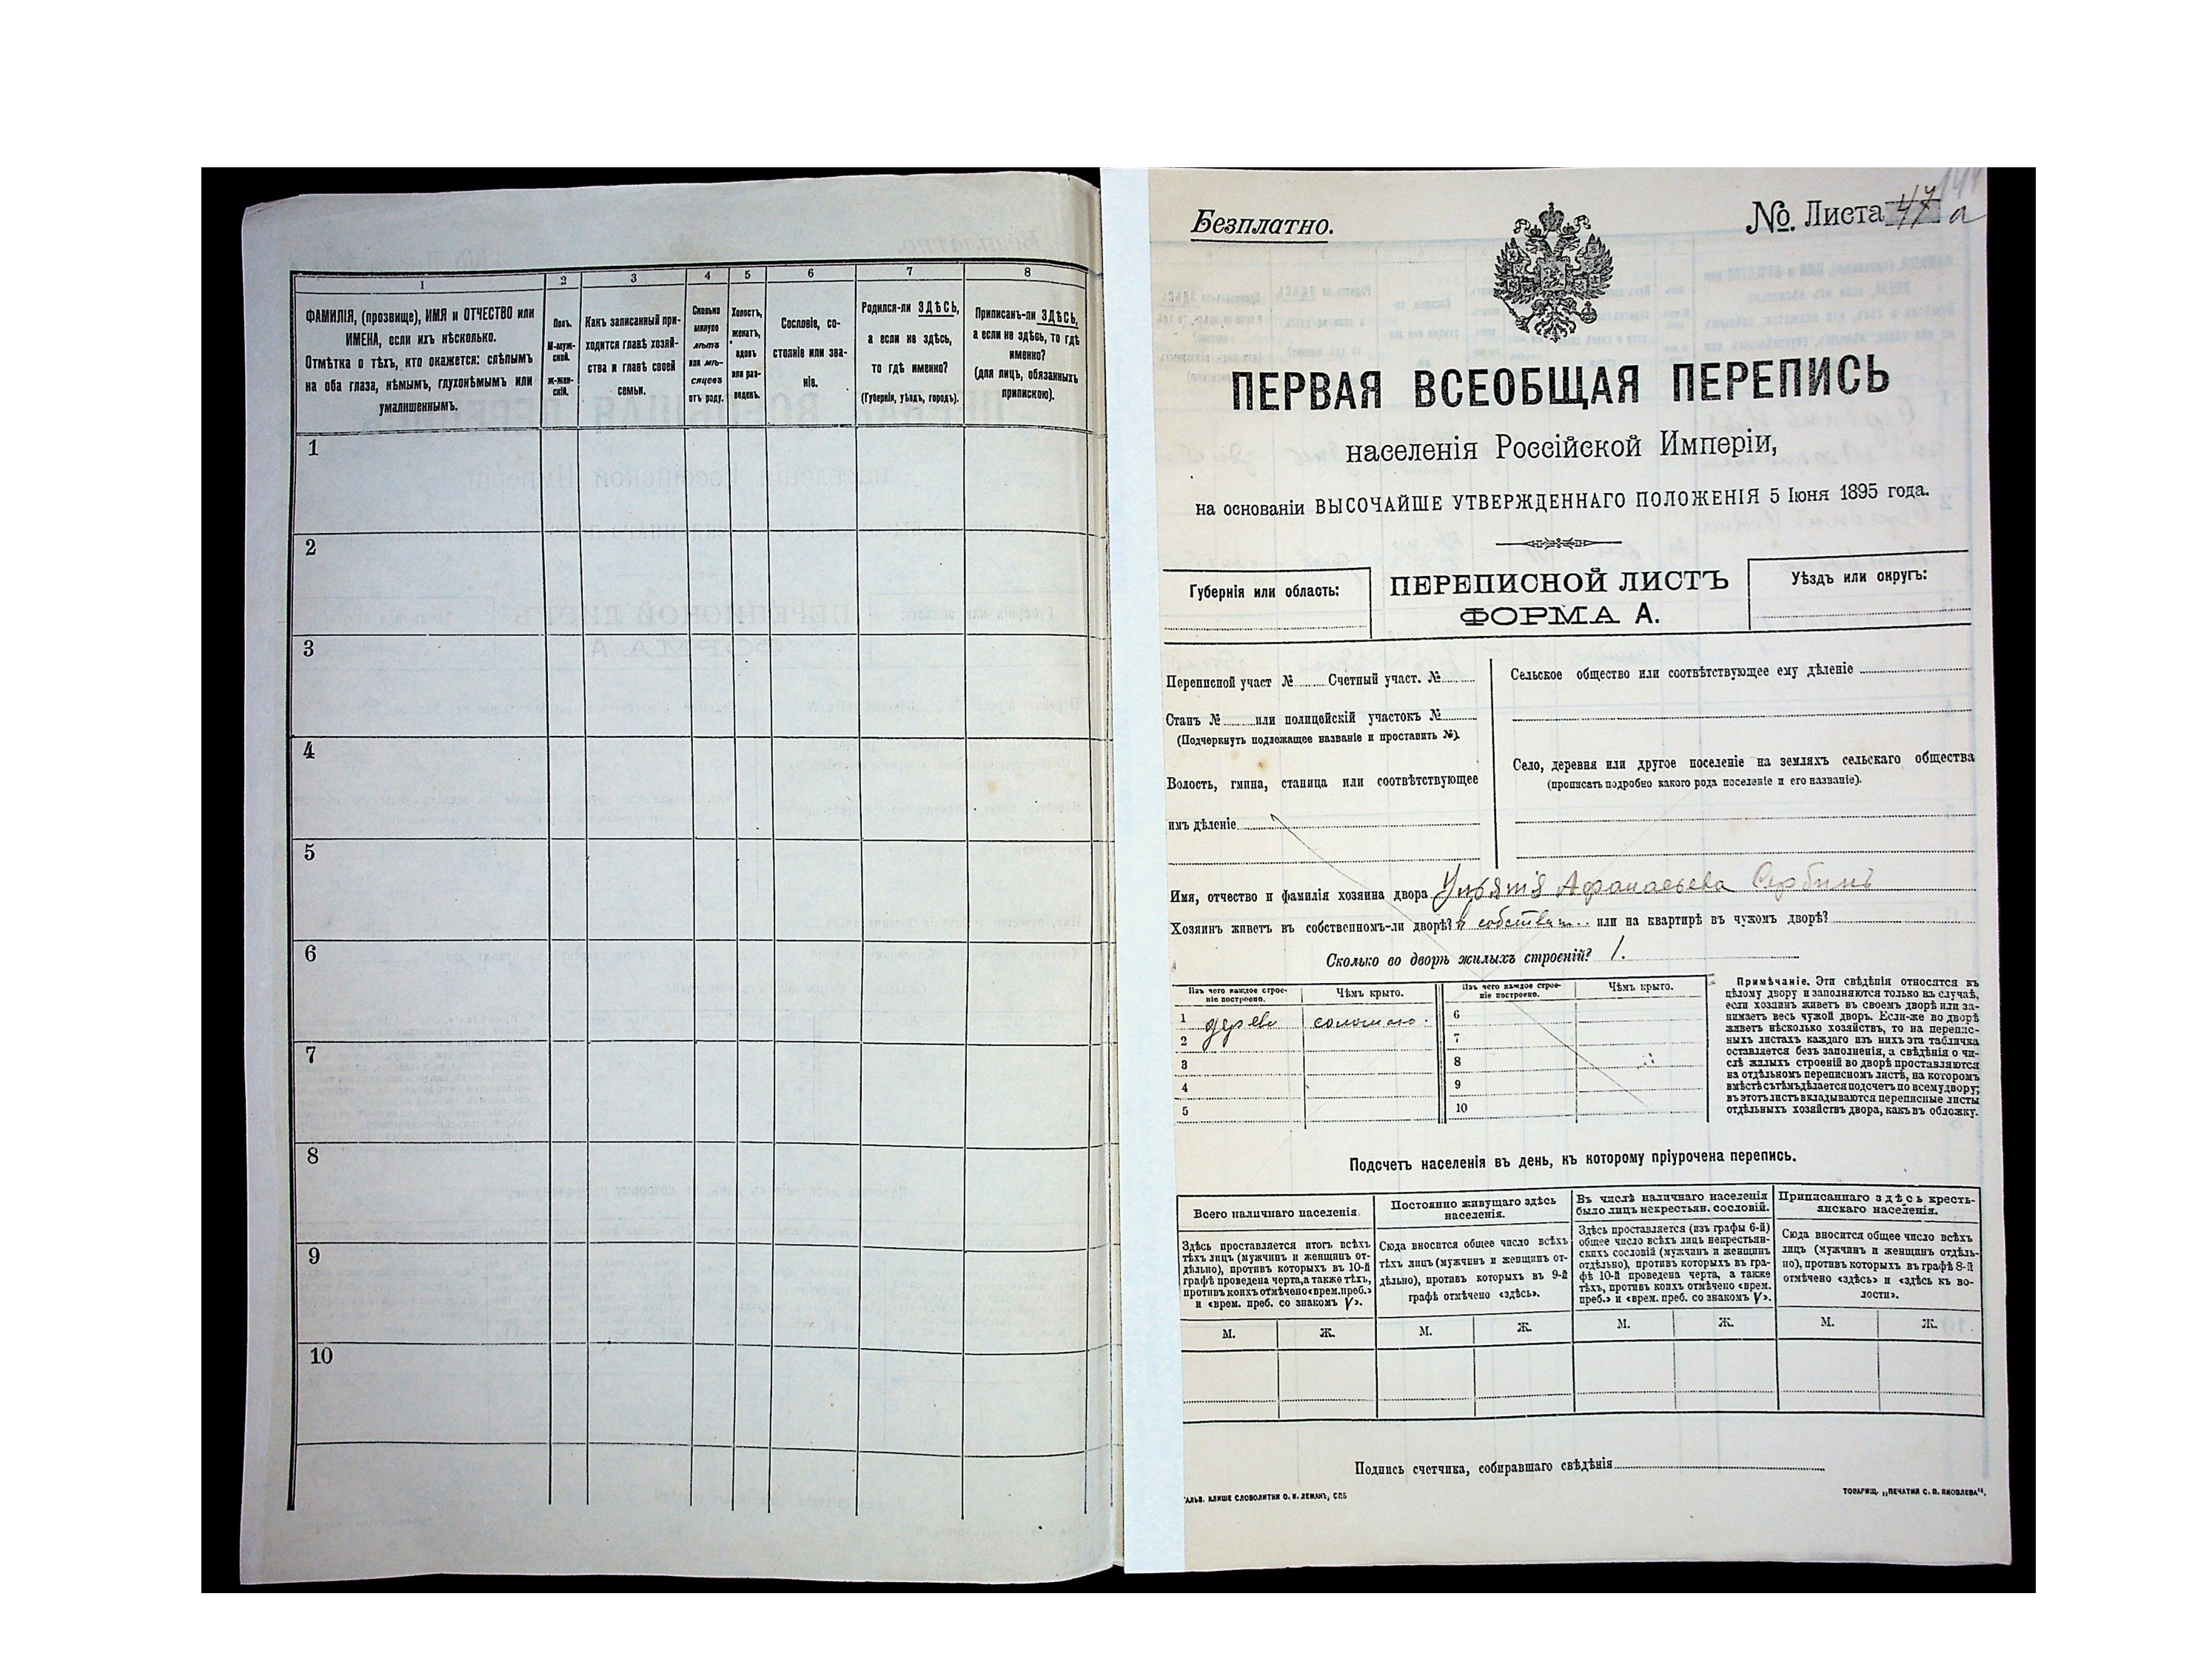 1
ФАМИЛІЯ, (прозвище), ИМЯ и ОТЧЕСТВО или
ИМЕНА, если ихъ нѣсколько.
Отмѣтка о тѣхъ, кто окажется: слѣпымъ
на оба глаза, нѣмымъ, глухонѣмымъ или
умалишеннымъ.
2
Полъ.
М-муж-
ской.
Ж-жен-
скій.
3
Какъ записанный при-
ходится главѣ хозяй-
ства и главѣ своей
семьи.
4
Сколько
минуло
лѣтъ
или мѣ-
сяцевъ
отъ роду.
5
Холостъ,
женатъ,
вдовъ
или раз-
веденъ.
6
Сословіе, со-
стояніе или зва-
ніе.
7
Родился-ли ЗДѢСЬ,
а если не здѣсь,
то гдѣ именно?
(Губернія, уѣздъ, городъ).
8
Приписанъ-ли ЗДѢСЬ,
а если не здѣсь, то гдѣ
именно?
(для лицъ, обязанныхъ
припискою).
1
2
3
4
5
6
7
8
9
10
Безплатно.
№. Листа 47 а
ПЕРВАЯ ВСЕОБЩАЯ ПЕРЕПИСЬ
населенія Россійской Имперіи,
на основаніи ВЫСОЧАЙШЕ УТВЕРЖДЕННАГО ПОЛОЖЕНІЯ 5 Іюня 1895 года.
Губернія или область:
ПЕРЕПИСНОЙ ЛИСТЪ
ФОРМА А.
Уѣздъ или округъ:
Переписной участ № Счетный участ. №
Станъ № или полицейскій участокъ №
(Подчеркнуть подлежащее названіе и проставить №).
Волость, гмина, станица или соотвѣтствующее
имъ дѣленіе
Сельское общество или соотвѣтствующее ему дѣленіе
Село, деревня или другое поселеніе на земляхъ сельскаго общества
(прописать подробно какого рода поселеніе и его названіе).
Имя, отчество и фамилія хозяина двора Афанасьева Сербинъ
Хозяинъ живетъ въ собственномъ-ли дворѣ? в собствен.. или на квартирѣ въ чужомъ дворѣ?
Сколько во дворѣ жилыхъ строеній? 1.
Изъ чего каждое строе-
ніе построено.
Чѣмъ крыто.
Изъ чего каждое строе-
ніе построено.
Чѣмъ крыто.
1 дерево соломою. 6
2 7
3 8
4 9
5 10
Примѣчаніе. Эти свѣдѣнія относятся къ
цѣлому двору и заполняются только въ случаѣ,
если хозяинъ живетъ въ своемъ дворѣ или за-
нимаетъ весь чужой дворъ. Если-же во дворѣ
живетъ нѣсколько хозяйствъ, то на перепис-
ныхъ листахъ каждаго изъ нихъ эта табличка
оставляется безъ заполненія, а свѣдѣнія о чи-
слѣ жилыхъ строеній во дворѣ проставляются
на отдѣльномъ переписномъ листѣ, на которомъ
вмѣстѣ съ тѣмъ дѣлается подсчетъ по всему двору;
въ этотъ листъ вкладываются переписные листы
отдѣльныхъ хозяйствъ двора, какъ въ обложку.
Подсчетъ населенія въ день, къ которому пріурочена перепись.
Всего наличнаго населенія.
Здѣсь проставляется итогъ всѣхъ
тѣхъ лицъ (мужчинъ и женщинъ от-
дѣльно), противъ которыхъ въ 10-й
графѣ проведена черта, а также тѣхъ,
противъ коихъ отмѣчено «врем. преб.»
и «врем. преб. со знакомъ V».
М. Ж.
Постоянно живущаго здѣсь
населенія.
Сюда вносится общее число всѣхъ
тѣхъ лицъ (мужчинъ и женщинъ от-
дѣльно), противъ которыхъ въ 9-й
графѣ отмѣчено «здѣсь».
М. Ж.
Въ числѣ наличнаго населенія
было лицъ некрестьян. сословій.
Здѣсь проставляется (изъ графы 6-й)
общее число всѣхъ лицъ некрестьян-
скихъ сословій (мужчинъ и женщинъ
отдѣльно), противъ которыхъ въ гра-
фѣ 10-й проведена черта, а также
тѣхъ, противъ коихъ отмѣчено «врем.
преб.» и «врем. преб. со знакомъ V».
М. Ж.
Приписаннаго здѣсь кресть-
янскаго населенія.
Сюда вносится общее число всѣхъ
лицъ (мужчинъ и женщинъ отдѣль-
но), противъ которыхъ въ графѣ 8-й
отмѣчено «здѣсь» и «здѣсь къ во-
лости».
М. Ж.
Подпись счетчика, собиравшаго свѣдѣнія
ГАЛЬВ. КЛИШЕ СЛОВОЛИТНИ О. И. ЛЕМАНЪ, СПБ
ТОВАРИЩ. „ПЕЧАТНЯ С. П. ЯКОВЛЕВА“.